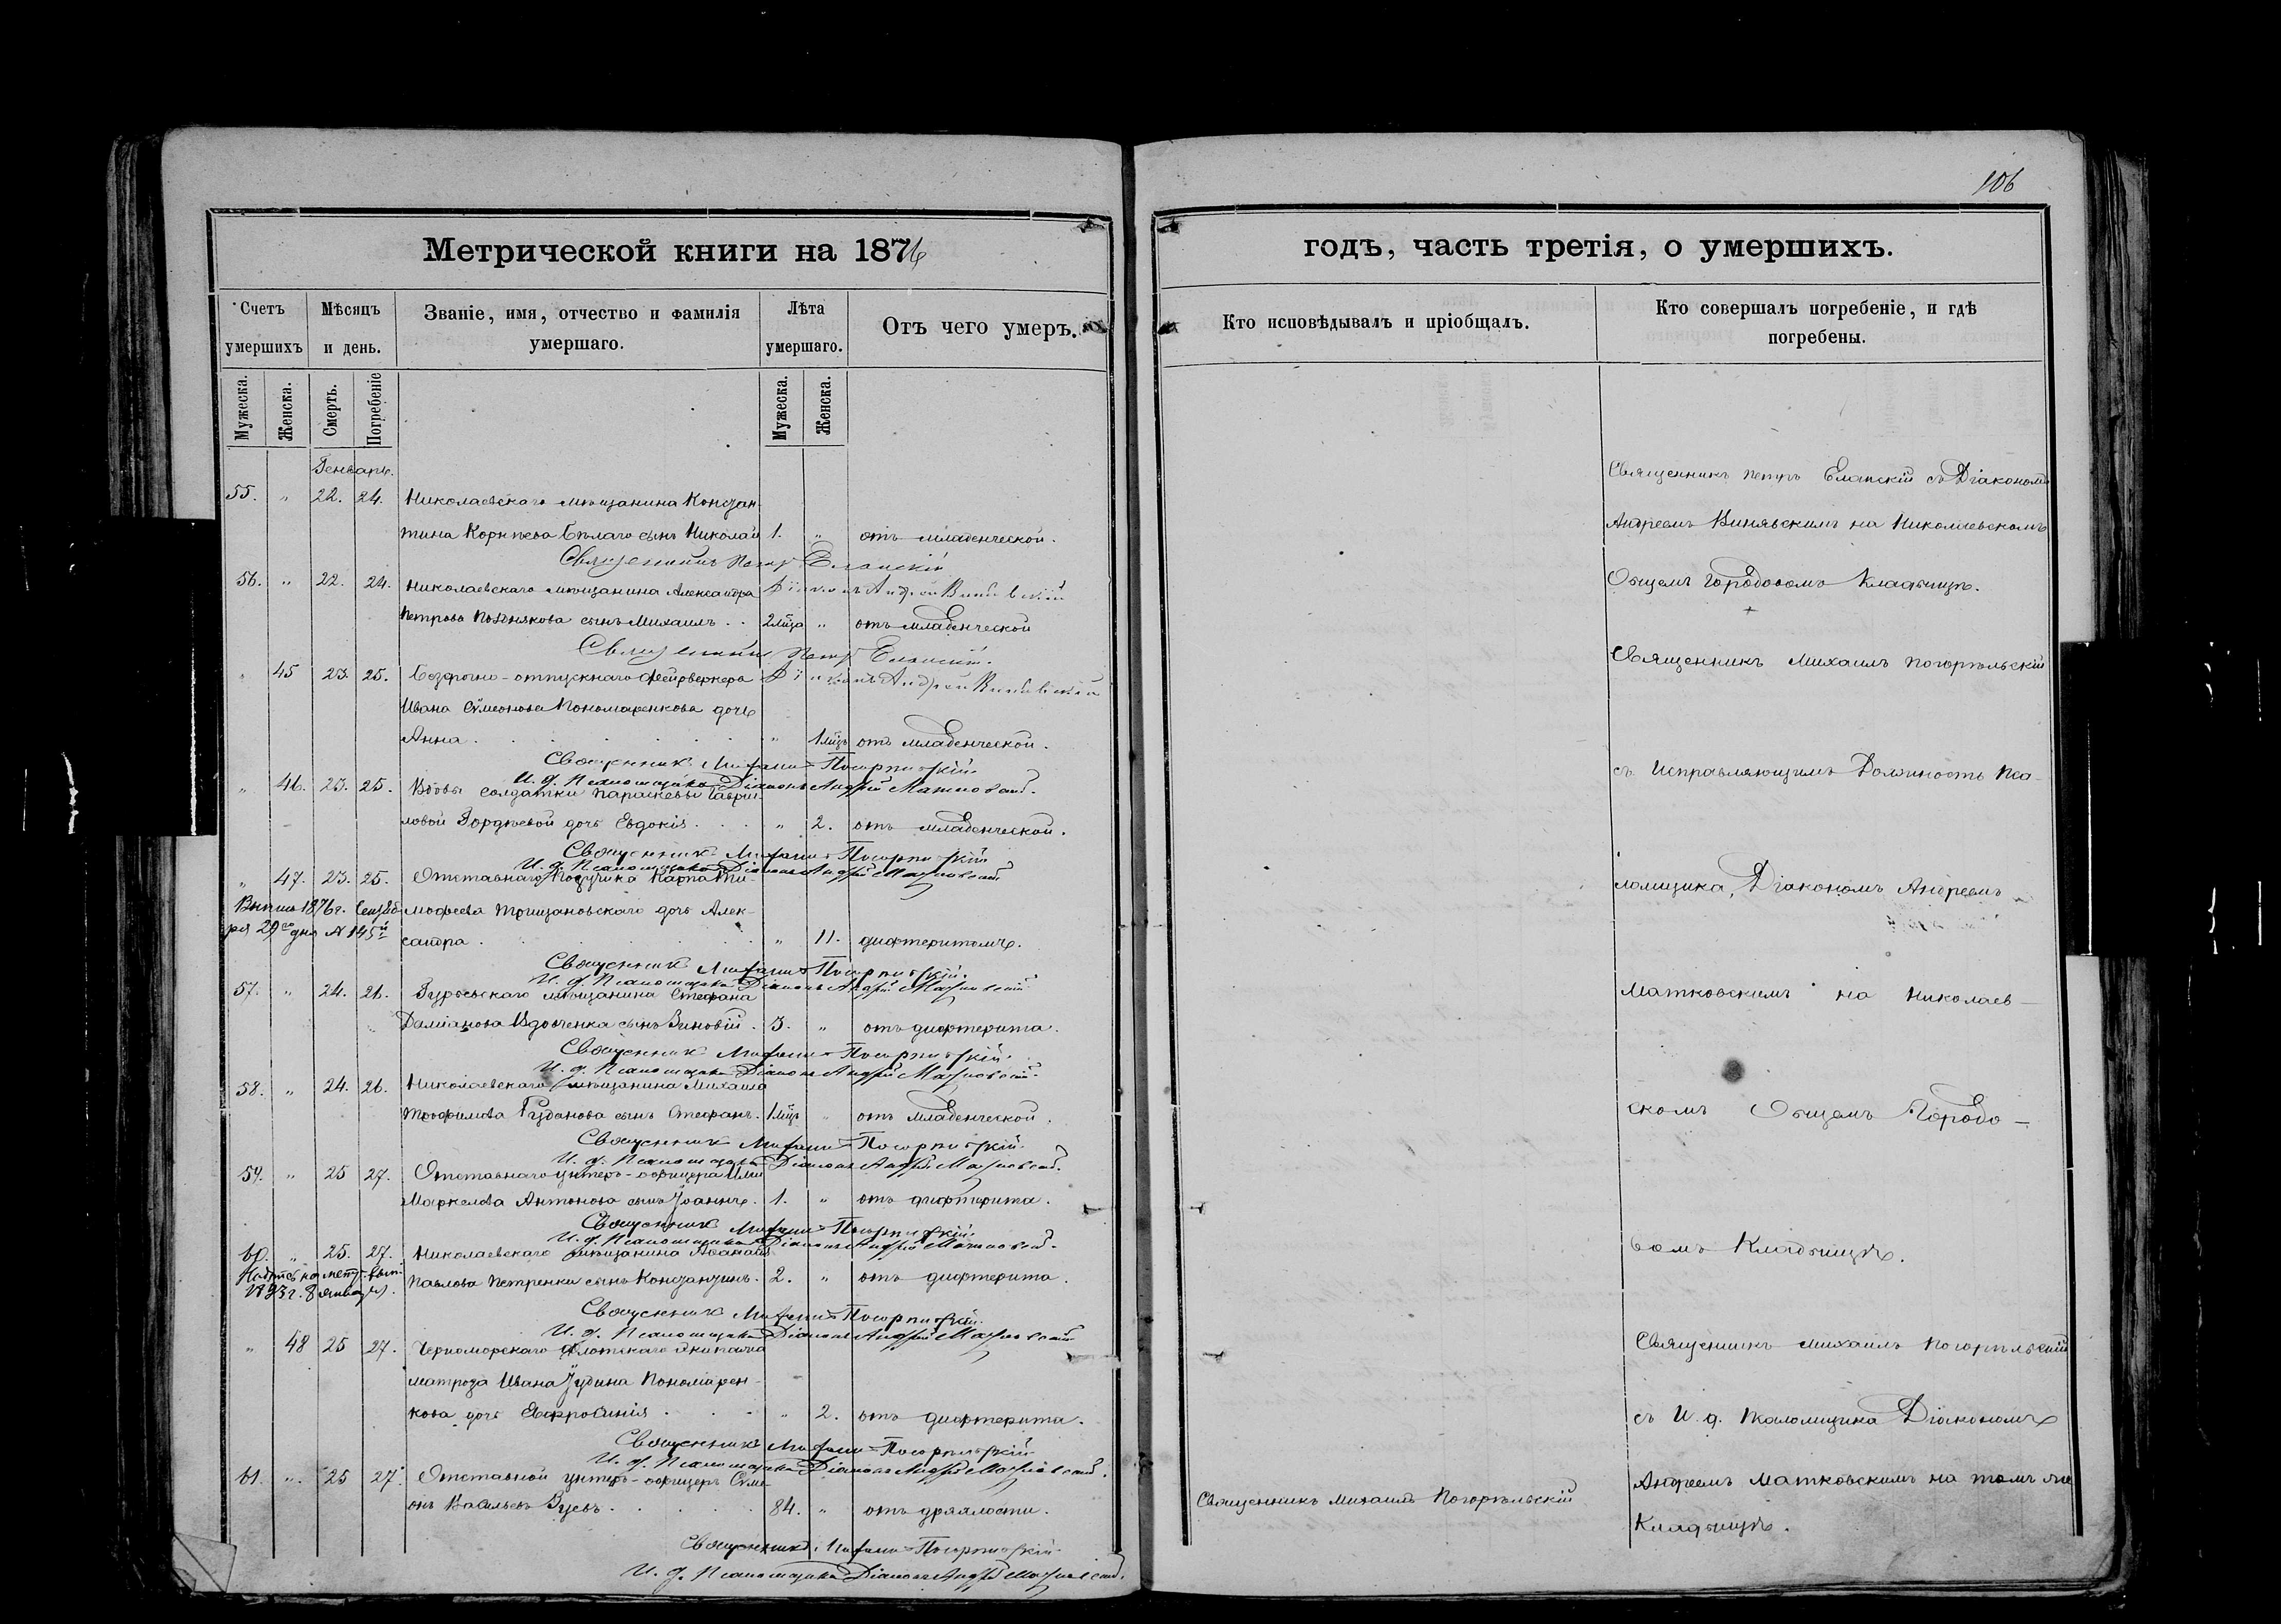 106
Метрической книги на 1876
годъ, часть третія, о умершихъ.
Счетъ умершихъ
Мѣсяцъ и день.
Званіе, имя, отчество и фамилія умершаго.
Лѣта умершаго.
Отъ чего умеръ.
Кто исповѣдывалъ и пріобщалъ.
Кто совершалъ погребеніе, и гдѣ погребены.
Мужеска.
Женска.
Смерть.
Погребеніе
Мужеска.
Женска.
Генварь.
55. " 22. 24. Николаевскаго мѣщанина Констан-
тина Корнѣева Бѣлаго сынъ Николай 1. " отъ младенческой.
Священникъ Петръ Еланскій
56. " 22. 24. Николаевскаго мѣщанина Александра
Діаконъ Андрей
Петрова Познякова сынъ Михаилъ . . 2 мѣца " отъ младенческой
Священникъ Петръ Еланскій.
" 45 23. 25. Безсрочно-отпускнаго Фейрверкера
Діаконъ Андрей
Ивана Сѵмеонова Пономаренкова дочь
Анна . " 1 мѣц. отъ младенческой.
Священникъ Михаилъ Погорѣльскій
И. д. Псаломщика Діаконъ Андрей Матковскій.
" 46. 23. 25. Вдовы солдатки Параскевы Гаври-
ловой Гордѣевой дочь Евдокія . . . " 2. отъ младенческой.
Священникъ Михаилъ Погорѣльскій
И. д. Псаломщика Діаконъ Андрей Матковскій
" 47. 23. 25. Отставнаго Поручика Карпа Ти-
мофеева Трищановскаго дочь Алек-
сандра . " 11. дифтеритомъ.
1876 г. Сентяб-
ря 29 дня № 145й
Священникъ Михаилъ Погорѣльскій.
И. д. Псаломщика Діаконъ Андрей Матковскій
57. " 24. 26. мѣщанина Стефана
Даміанова Вдовченка сынъ Зиновій . 3. " отъ дифтерита.
Священникъ Михаилъ Погорѣльскій.
И. д. Псаломщика Діаконъ Андрей Матковскій.
58. " 24. 26. Николаевскаго мѣщанина Михаила
Трофимова сынъ Стефанъ. 1 мѣц. " отъ младенческой.
Священникъ Михаилъ Погорѣльскій
И. д. Псаломщика Діаконъ Андрей Матковскій.
59. " 25 27. Отставнаго унтеръ-офицера
Маркелова Антонова сынъ Іоаннъ . 1. " отъ дифтерита.
Священникъ Михаилъ Погорѣльскій
И. д. Псаломщика Діаконъ Андрей Матковскій.
60. " 25. 27. Николаевскаго мѣщанина
Павлова Петренки сынъ Константинъ. 2. " отъ дифтерита.
8 января.
Священникъ Михаилъ Погорѣльскій.
И. д. Псаломщика Діаконъ Андрей Матковскій
" 48 25 27. Черноморскаго флотскаго экипажа
матроза Ивана Іудина Пономарен-
кова дочь Евфросинія . . . " 2. отъ дифтерита.
Священникъ Михаилъ Погорѣльскій
И. д. Псаломщика Діаконъ Андрей Матковскій.
61. " 25 27. Отставной унтеръ-офицеръ Сѵме-
онъ Васильевъ Зуевъ . . . . 84. " отъ дряхлости.
Священникъ Михаилъ Погорѣльскій
И. д. Псаломщика Діаконъ Андрей Матковскій.
Священникъ Михаилъ Погорѣльскій
Священникъ Петръ Еланскій съ Діакономъ
Андреемъ на Николаевскомъ
Общемъ Городовомъ Кладбищѣ.
Священникъ Михаилъ Погорѣльскій
съ Исправляющимъ Должность Пса-
ломщика, Діакономъ Андреемъ
Матковскимъ на Николаев-
скомъ Общемъ Городо-
вомъ Кладбищѣ.
Священникъ Михаилъ Погорѣльскій
съ И. д. Псаломщика Діакономъ
Андреемъ Матковскимъ на томъ же
Кладбищѣ.